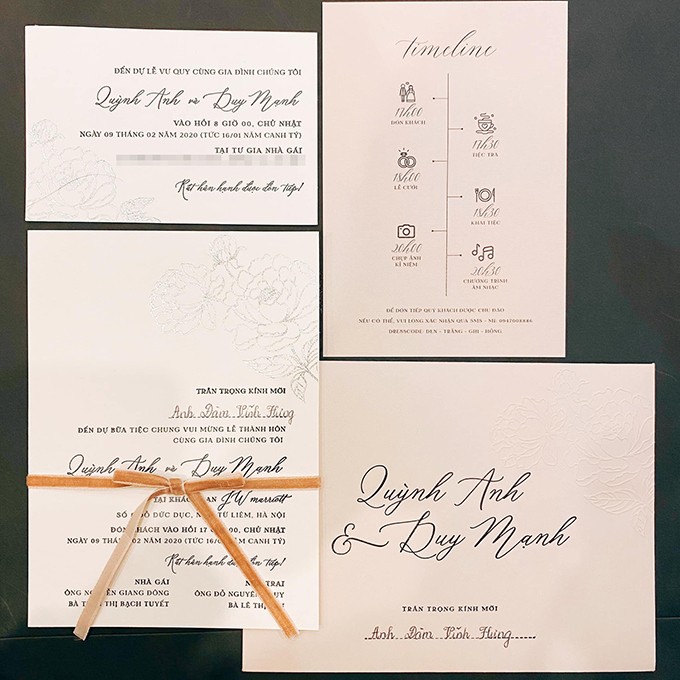 ĐẾN DỰ LỄ VU QUY CÙNG GIA ĐÌNH CHÚNG TÔI
Quỳnh Anh và Duy Mạnh
VÀO HỒI 8 GIỜ 00, CHỦ NHẬT
NGÀY 09 THÁNG 02 NĂM 2020 (TỨC 16/01 NĂM CANH TÝ)
TẠI TƯ GIA NHÀ GÁI
Rất hân hạnh được đón tiếp!
timeline
17h00
ĐÓN KHÁCH
17h30
TIỆC TRÀ
18h00
LỄ CƯỚI
18h30
KHAI TIỆC
20h00
CHỤP ẢNH
KỈ NIỆM
20h30
CHƯƠNG TRÌNH
ÂM NHẠC
ĐỂ ĐÓN TIẾP QUÝ KHÁCH ĐƯỢC CHU ĐÁO
NẾU CÓ THỂ, VUI LÒNG XÁC NHẬN QUA SMS -
DRESSCODE: ĐEN - TRẮNG - GHI - HỒNG
TRÂN TRỌNG KÍNH MỜI
Anh Đàm Vĩnh Hưng
ĐẾN DỰ BỮA TIỆC CHUNG VUI MỪNG LỄ THÀNH HÔN
CÙNG GIA ĐÌNH CHÚNG TÔI
Quỳnh Anh và Duy Mạnh
TẠI KHÁCH AN JW marriott
SỐ ĐỖ ĐỨC TỪ LIÊM, HÀ NỘI
ĐÓN KHÁCH VÀO HỒI 17 00, CHỦ NHẬT
NGÀY 09 THÁNG 02 NĂM 2020 (TỨC 16/ NĂM CANH TÝ)
Rất hân hạnh được đón tiếp!
NHÀ GÁI
ÔNG NGUYỄN GIANG ĐÔNG
BÀ THỊ BẠCH TUYẾT
NHÀ TRAI
ÔNG ĐỖ NGUYÊN UY
BÀ LÊ THỊ
Quỳnh Anh
& Duy Mạnh
TRÂN TRỌNG KÍNH MỜI
Anh Đàm Vĩnh Hưng